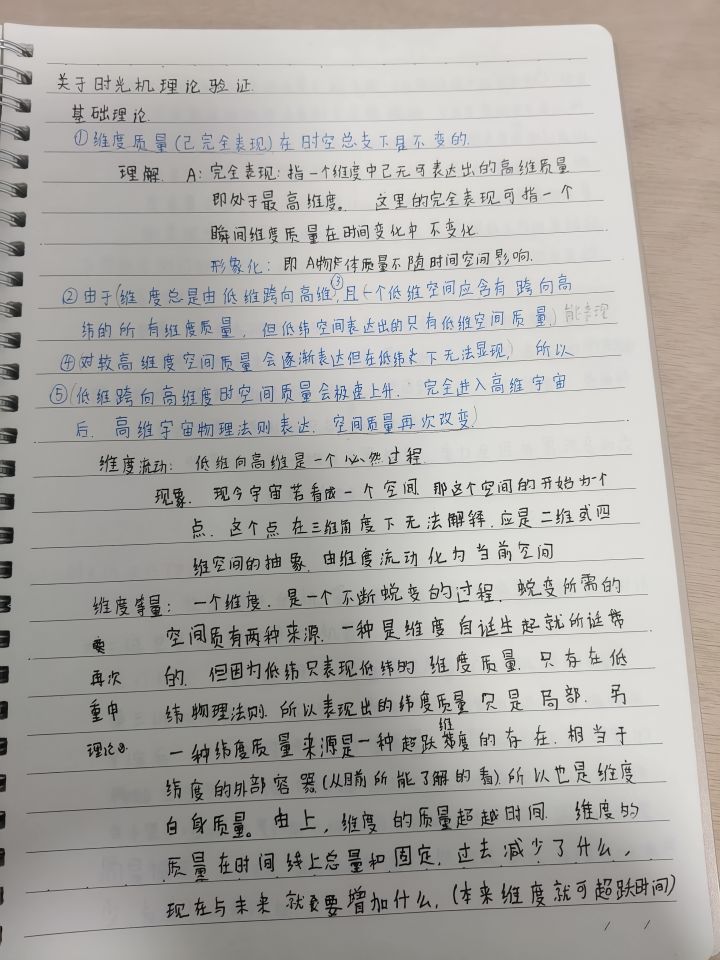 关于时光机理论验证.
基础理论.
①维度质量(已完全表现)在时空总支下具不变的.
理解. A:完全表现:指一个维度中已无可表达出的高维质量
即处于最高维度。 这里的完全表现可指一个
瞬间维度质量在时间变化中不变化.
形象化: 即A物体质量不随时间空间影响.
②由于(维度总是由低维跨向高维,③且一个低维空间应含有跨向高
纬的所有维度质量, 但低纬空间表达出的只有低维空间质量,)能表现
④(对较高维度空间质量会逐渐表达但在低纬下无法显现) 所以
⑤(低维跨向高维度时空间质量会极速上升. 完全进入高维宇宙
后. 高维宇宙物理法则表达. 空间质量再次改变)
维度流动: 低维向高维是一个必然过程.
现象. 现今宇宙若看成一个空间. 那这个空间的开始为一个
点. 这个点在三维角度下无法解释. 应是二维或四
维空间的抽象. 由维度流动化为当前空间
维度等量: 一个维度. 是一个不断蜕变的过程. 蜕变所需的
空间质有两种来源. 一种是维度自诞生起就所迋带
再次 的. 但因为低纬只表现低纬的维度质量. 只存在低
重申 纬物理法则. 所以表现出的纬度质量只是局部. 另
理论④. 一种纬度质量来源是一种超跃维度的存在. 相当于
纬度的外部容器(从目前所能了解的看).所以也是维度
自身质量。由上, 维度的质量超越时间. 维度的
质量在时间线上总量和固定. 过去减少了什么,
现在与未来就要增加什么. (本来维度就可超跃时间)